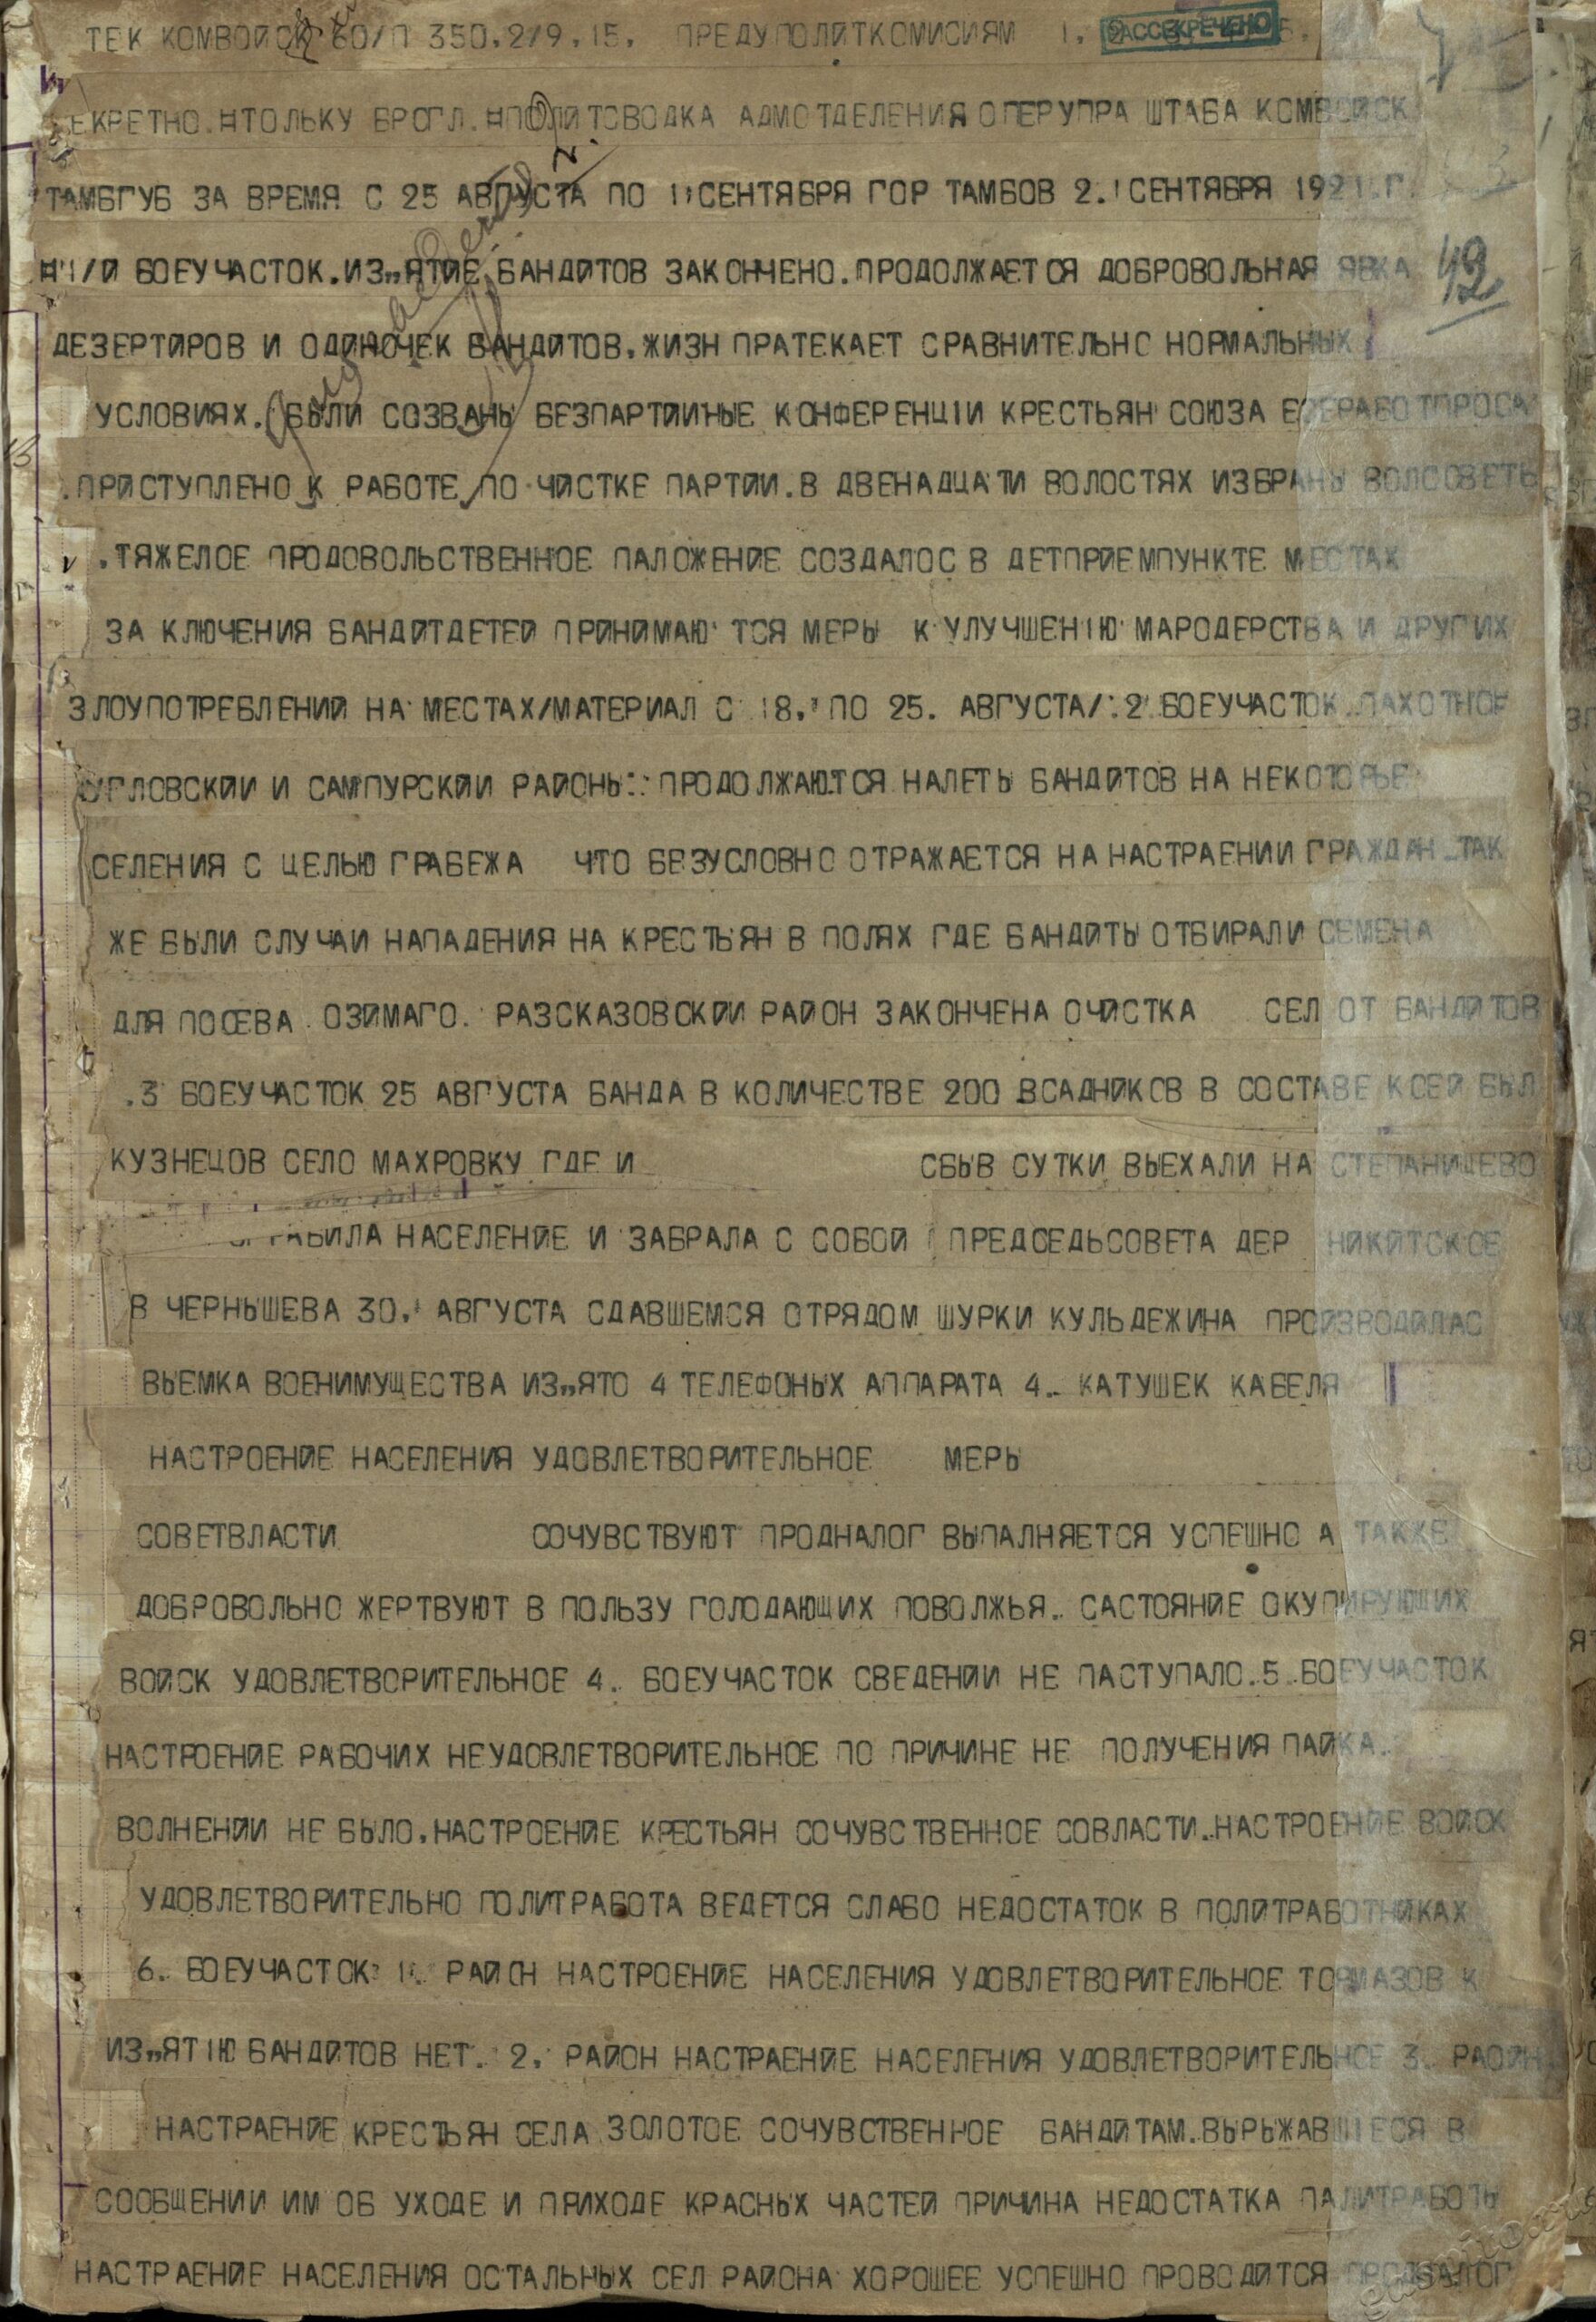 ТЕК КОМВОЙСК 60/П 350.2/9.15. ПРЕДУПОЛИТКОМИСИЯМ 1. РАССЕКРЕЧЕНО
ЕКРЕТНО.НТОЛЬКУ БРОГЛ. НПОЛИТСВОДКА АДМОТДЕЛЕНИЯ ОПЕРУПРА ШТАБА КОМВОЙСК
ТАМБГУБ ЗА ВРЕМЯ С 25 АВГУСТА ПО 1 СЕНТЯБРЯ ГОР ТАМБОВ 2. СЕНТЯБРЯ 1921.Г.
Н1/Й БОЕУЧАСТОК.ИЗ„ЯТИЕ БАНДИТОВ ЗАКОНЧЕНО.ПРОДОЛЖАЕТСЯ ДОБРОВОЛЬНАЯ ЯВКА
49
ДЕЗЕРТИРОВ И ОДИНОЧЕК БАНДИТОВ.ЖИЗН ПРАТЕКАЕТ СРАВНИТЕЛЬНО НОРМАЛЬНЫХ
УСЛОВИЯХ. БЫЛИ СОЗВАНЫ БЕЗПАРТИИНЫЕ КОНФЕРЕНЦIИ КРЕСТЬЯН СОЮЗА
.ПРИСТУПЛЕНО К РАБОТЕ ПО ЧИСТКЕ ПАРТИИ.В ДВЕНАДЦАТИ ВОЛОСТЯХ ИЗБРАНЫ ВОЛСОВЕТЫ
.ТЯЖЕЛОЕ ПРОДОВОЛЬСТВЕННОЕ ПАЛОЖЕНИЕ СОЗДАЛОС В ДЕТПРИЕМПУНКТЕ МЕСТАХ
ЗА КЛЮЧЕНИЯ БАНДИТДЕТЕЙ ПРИНИМАЮ ТСЯ МЕРЫ К УЛУЧШЕНIЮ МАРОДЕРСТВА И ДРУГИХ
ЗЛОУПОТРЕБЛЕНИЙ НА МЕСТАХ/МАТЕРИАЛ С 18. ПО 25. АВГУСТА/.2 БОЕУЧАСТОК ПАХОТНОЕ
ОРЛОВСКИИ И САМПУРСКИИ РАЙОНЫ: ПРОДОЛЖАЮТСЯ НАЛЕТЫ БАНДИТОВ НА НЕКОТОРЫЕ
СЕЛЕНИЯ С ЦЕЛЬЮ ГРАБЕЖА ЧТО БЕЗУСЛОВНО ОТРАЖАЕТСЯ НА НАСТРАЕНИИ ГРАЖДАН ТАК
ЖЕ БЫЛИ СЛУЧАИ НАПАДЕНИЯ НА КРЕСТЬЯН В ПОЛЯХ ГДЕ БАНДИТЫ ОТБИРАЛИ СЕМЕНА
ДЛЯ ПОСЕВА ОЗИМАГО. РАЗСКАЗОВСКИИ РАЙОН ЗАКОНЧЕНА ОЧИСТКА СЕЛ ОТ БАНДИТОВ
.3 БОЕУЧАСТОК 25 АВГУСТА БАНДА В КОЛИЧЕСТВЕ 200 ВСАДНИКОВ В СОСТАВЕ КОЕЙ БЫЛ
КУЗНЕЦОВ СЕЛО МАХРОВКУ ГДЕ И СБЫВ СУТКИ ВЫЕХАЛИ НА СТЕПАНИЩЕВО
НАСЕЛЕНИЕ И ЗАБРАЛА С СОБОЙ ПРЕДСЕДЬСОВЕТА ДЕР НИКИТСКОЕ
В ЧЕРНЫШЕВА 30. АВГУСТА СДАВШЕМСЯ ОТРЯДОМ ШУРКИ КУЛЬДЕЖИНА ПРОИЗВОДИЛАС
ВЫЕМКА ВОЕНИМУЩЕСТВА ИЗ„ЯТО 4 ТЕЛЕФОНЫХ АППАРАТА 4. КАТУШЕК КАБЕЛЯ
НАСТРОЕНИЕ НАСЕЛЕНИЯ УДОВЛЕТВОРИТЕЛЬНОЕ МЕРЫ
СОВЕТВЛАСТИ СОЧУВСТВУЮТ ПРОДНАЛОГ ВЫПАЛНЯЕТСЯ УСПЕШНО А ТАКЖЕ
ДОБРОВОЛЬНО ЖЕРТВУЮТ В ПОЛЬЗУ ГОЛОДАЮЩИХ ПОВОЛЖЬЯ. САСТОЯНИЕ ОКУПИРУЮЩИХ
ВОЙСК УДОВЛЕТВОРИТЕЛЬНОЕ 4. БОЕУЧАСТОК СВЕДЕНИИ НЕ ПАСТУПАЛО.5.БОЕУЧАСТОК
НАСТРОЕНИЕ РАБОЧИХ НЕУДОВЛЕТВОРИТЕЛЬНОЕ ПО ПРИЧИНЕ НЕ ПОЛУЧЕНИЯ ПАЙКА.
ВОЛНЕНИИ НЕ БЫЛО.НАСТРОЕНИЕ КРЕСТЬЯН СОЧУВСТВЕННОЕ СОВЛАСТИ.НАСТРОЕНИЕ ВОЙСК
УДОВЛЕТВОРИТЕЛЬНО ПОЛИТРАБОТА ВЕДЕТСЯ СЛАБО НЕДОСТАТОК В ПОЛИТРАБОТНИКАХ
6. БОЕУЧАСТОК 1. РАЙОН НАСТРОЕНИЕ НАСЕЛЕНИЯ УДОВЛЕТВОРИТЕЛЬНОЕ ТОРМАЗОВ К
ИЗ„ЯТIЮ БАНДИТОВ НЕТ. 2. РАЙОН НАСТРАЕНИЕ НАСЕЛЕНИЯ УДОВЛЕТВОРИТЕЛЬНОЕ 3. РАОЙН
НАСТРАЕНИЕ КРЕСТЬЯН СЕЛА ЗОЛОТОЕ СОЧУВСТВЕННОЕ БАНДИТАМ.ВЫРЫЖАВШИЕСЯ В
СООБЩЕНИИ ИМ ОБ УХОДЕ И ПРИХОДЕ КРАСНЫХ ЧАСТЕЙ ПРИЧИНА НЕДОСТАТКА ПАЛИТРАБОТЫ
НАСТРАЕНИЕ НАСЕЛЕНИЯ ОСТАЛЬНЫХ СЕЛ РАЙОНА ХОРОШЕЕ УСПЕШНО ПРОВОДИТСЯ ПРОДНАЛОГ